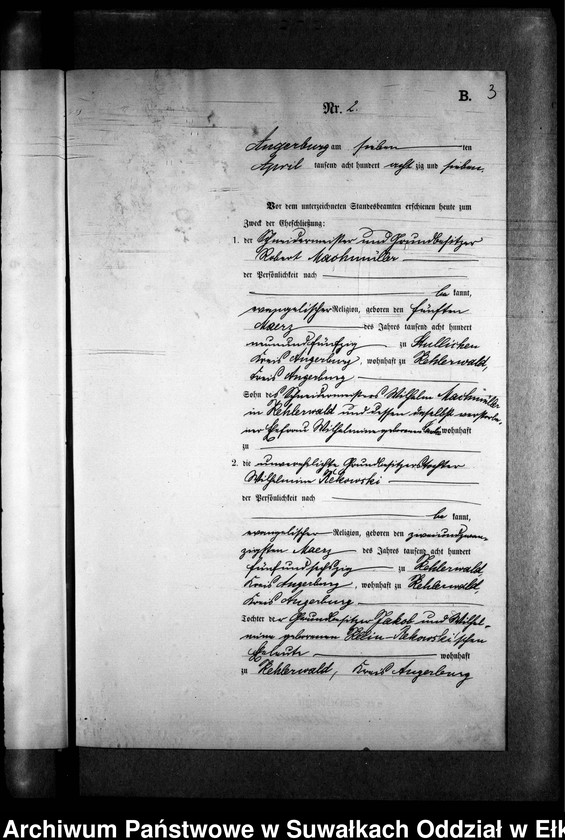 B. 3
Nr. 2.
Angerburg am sieben ten
April tausend acht hundert acht zig und sieben.
Vor dem unterzeichneten Standesbeamten erschienen heute zum
Zweck der Eheschließung:
1. der Schneidermeister und Grundbesitzer
Robert Machmüller
der Persönlichkeit nach
be kannt,
evangelischer Religion, geboren den fünften
Maerz des Jahres tausend acht hundert
neunundfünfzig zu Stullichen
Kreis Angerburg, wohnhaft zu Kehlerwald,
Kreis Angerburg.
Sohn des Schneidermeisters Wilhelm Machmüller
in Kehlerwald und dessen daselbst verstorbe-
ner Ehefrau Wilhelmine geborenen wohnhaft
zu
2. die unverehelichte Grundbesitzerstochter
Wilhelmine Rekowski
der Persönlichkeit nach
be kannt,
evangelischer Religion, geboren den zweiundzwan-
zigsten Maerz des Jahres tausend acht hundert
fünfundsechszig zu Kehlerwald,
Kreis Angerburg, wohnhaft zu Kehlerwald,
Kreis Angerburg
Tochter der Grundbesitzer Jakob und Wilhel-
mine geborenen Klein-Rekowski'schen
Eheleute wohnhaft
zu Kehlerwald, Kreis Angerburg
Archiwum Państwowe w Suwałkach Oddział w Ełk